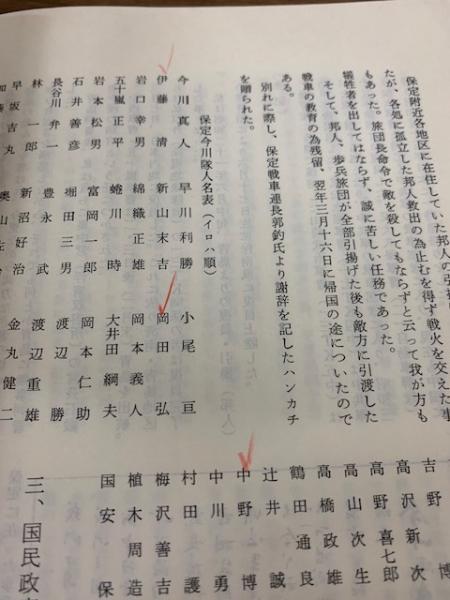 保定附近各地区に在住していた邦人の引揚
たが、各処に孤立した邦人救出の為止むを得ず戦火を交えた事
もあった。旅団長命令で敵を殺してもならずと云って我が方も
犠牲者を出してはならず、誠に苦しい任務であった。
そして、邦人、歩兵旅団が全部引揚げた後も敵方に引渡した
戦車の教育の為残留、翌年三月十六日に帰国の途についたので
ある。
別れに際し、保定戦車連長郭釣氏より謝辞を記したハンカチ
を贈られた。
保定今川隊人名表(イロハ順)
今川真人
伊藤清
岩口幸男
五十嵐正平
岩本松男
石井善彦
長谷川弁一
林一郎
早坂吉
丸
早川利勝
新山末吉
綿織正雄
蜷川時
富岡一郎
堀田三男
豊永武
新沼好治
奥山
小尾亘
岡田弘
岡本義人
大井田綱夫
岡本仁助
渡辺勝
渡辺重雄
金丸健二
吉野博
高沢新次
高野喜七郎
高山次生
高橋政雄
鶴田通良
辻井誠
中野博
中川勇
村田護
梅沢善吉
植木周造
国安保
三、国民政